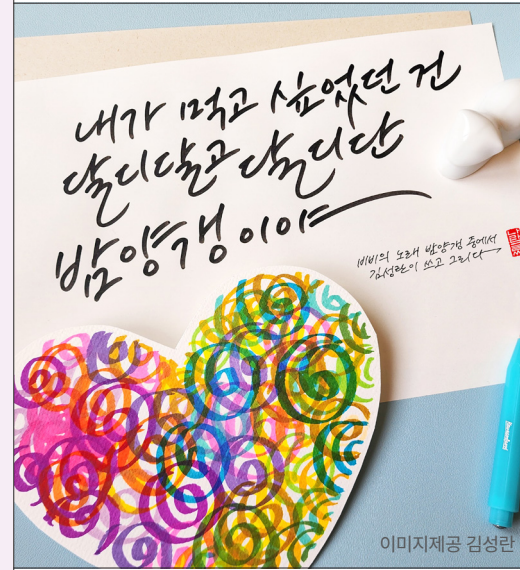 내가 먹고 싶었던 건
달디달고 달디단
밤양갱이야
비비의 노래 밤양갱 중에서
김성란이 쓰고 그리다
이미지제공 김성란